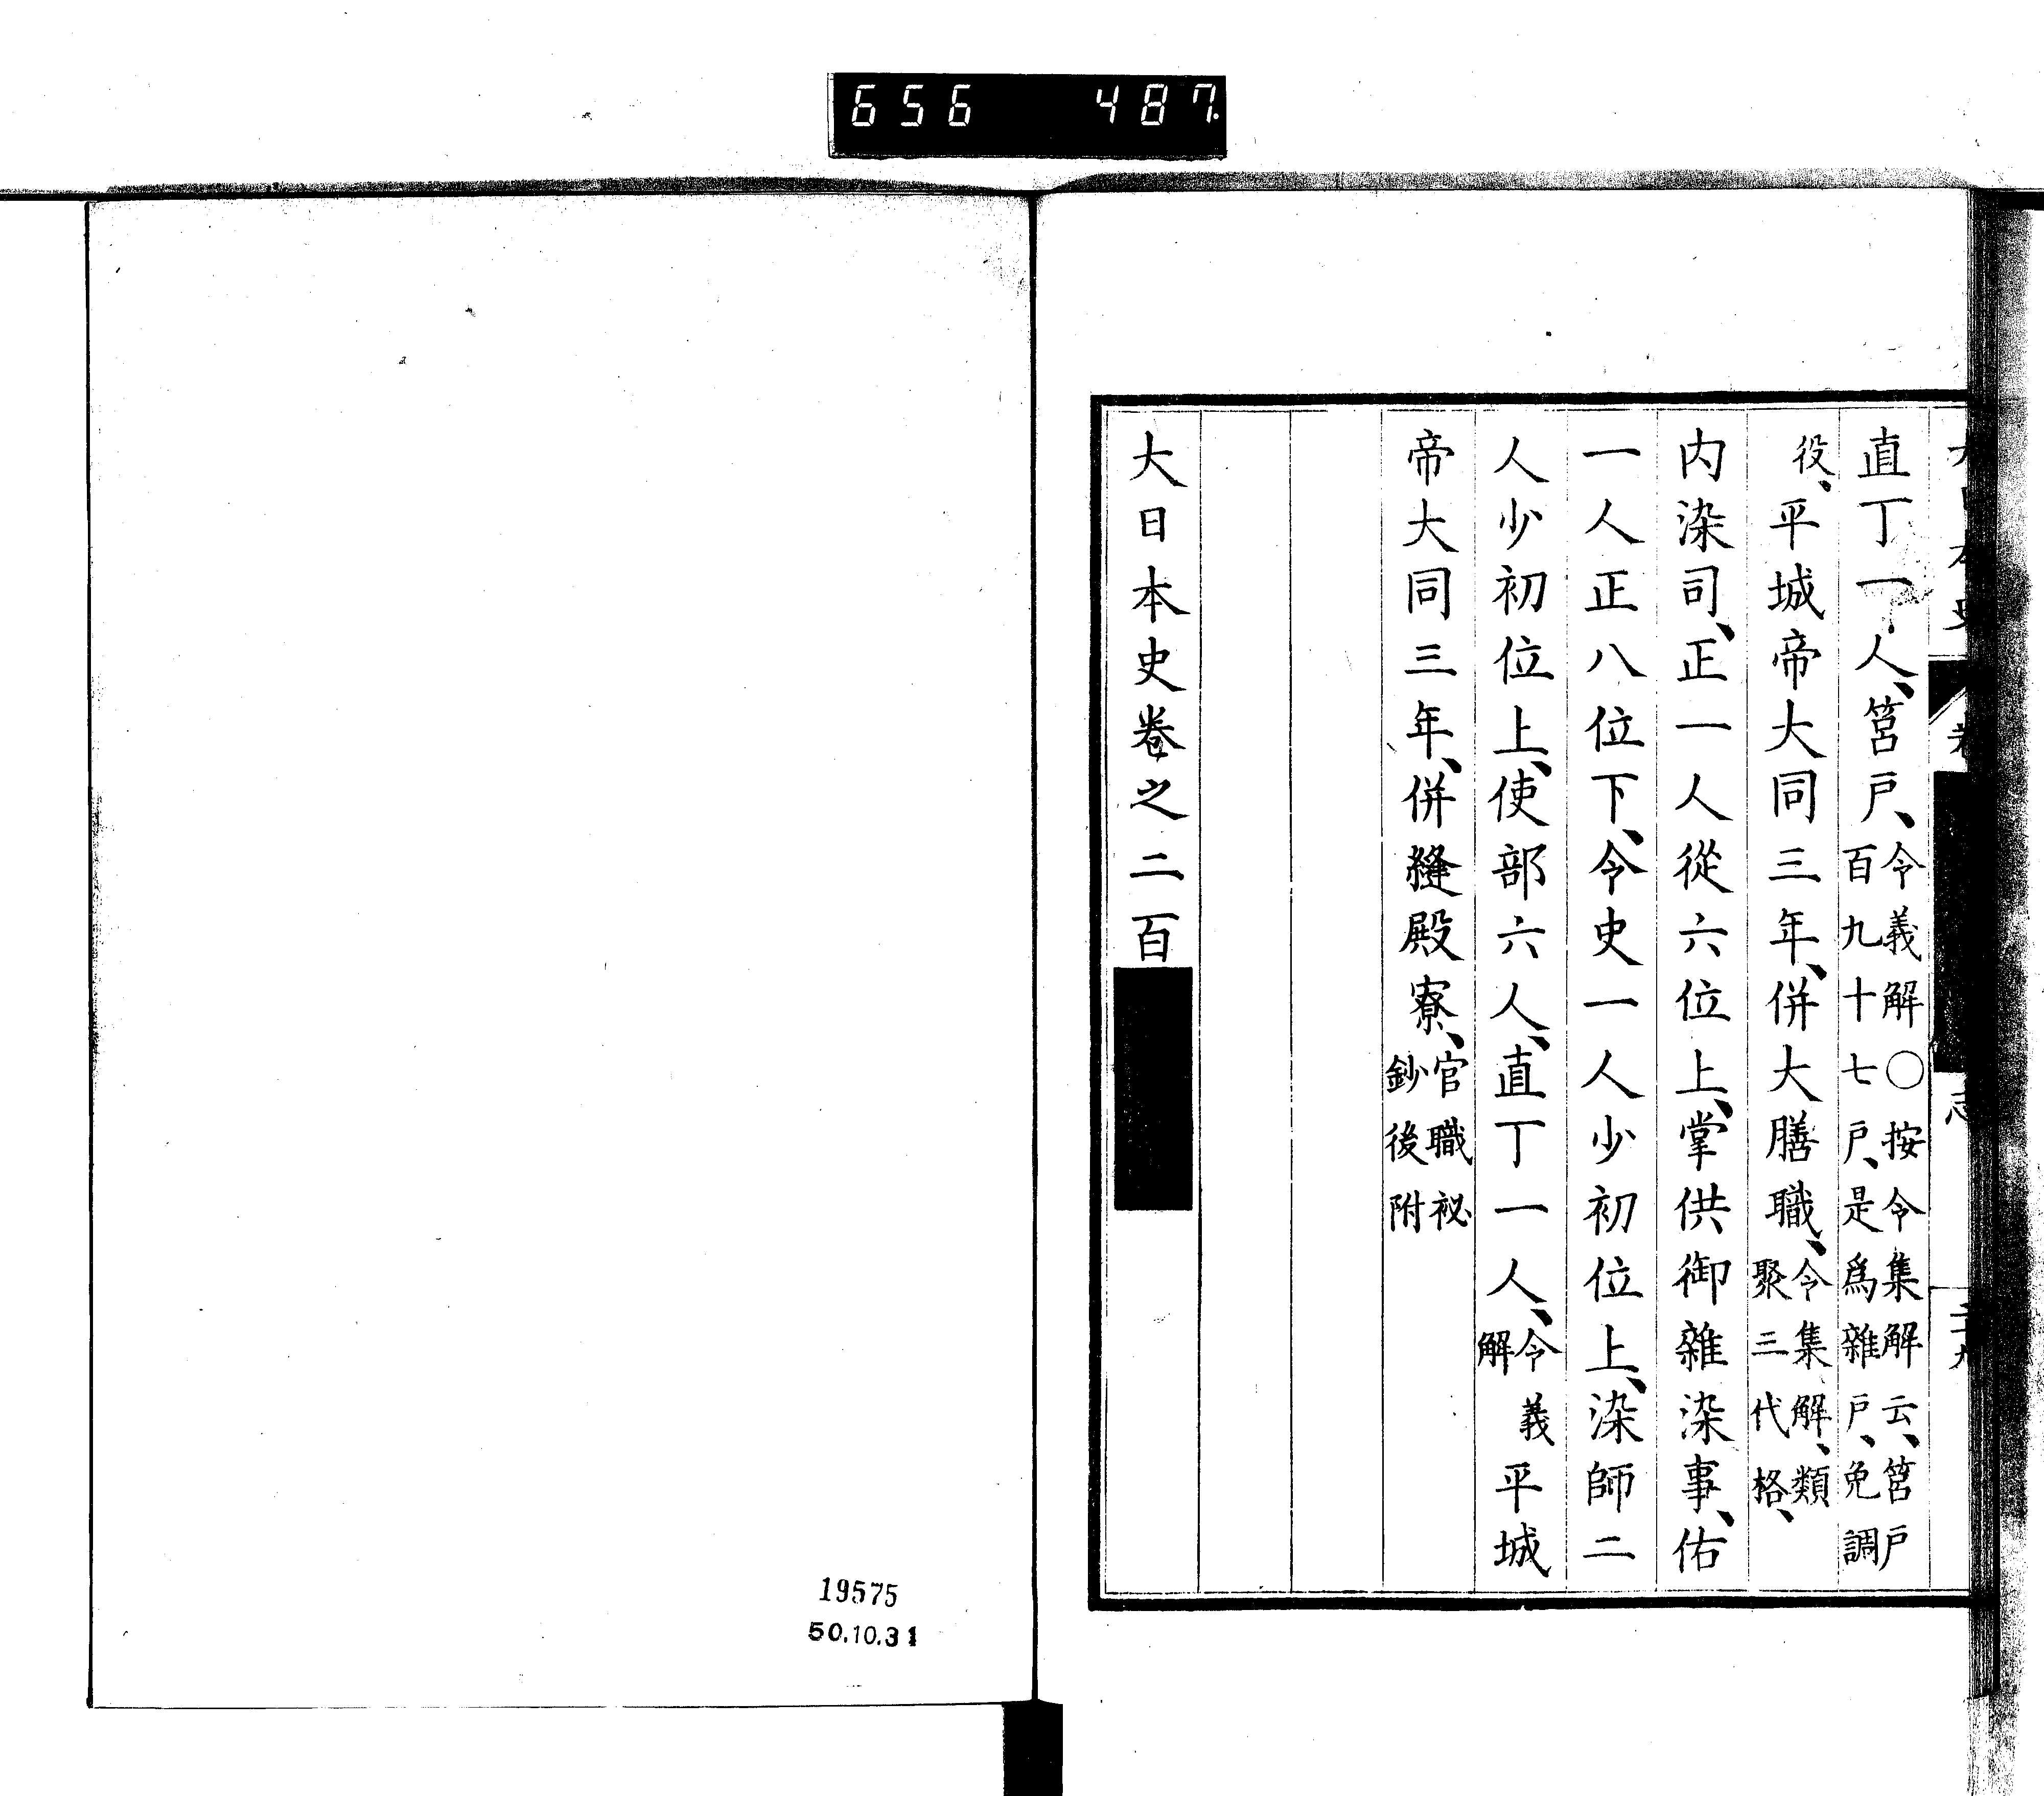 656 487.
直丁一人、筥戸、令義解○按令集解云、筥戸百九十七戸、是爲雜戸、免調
役、平城帝大同三年、併大膳職、令集解、類聚三代格、
内染司、正一人從六位上、掌供御雜染事、佑
一人正八位下、令史一人少初位上、染師二
人少初位上、使部六人、直丁一人、令義解平城
帝大同三年、併縫殿寮、官職祕鈔後附
大日本史卷之二百
19575
50.10.31